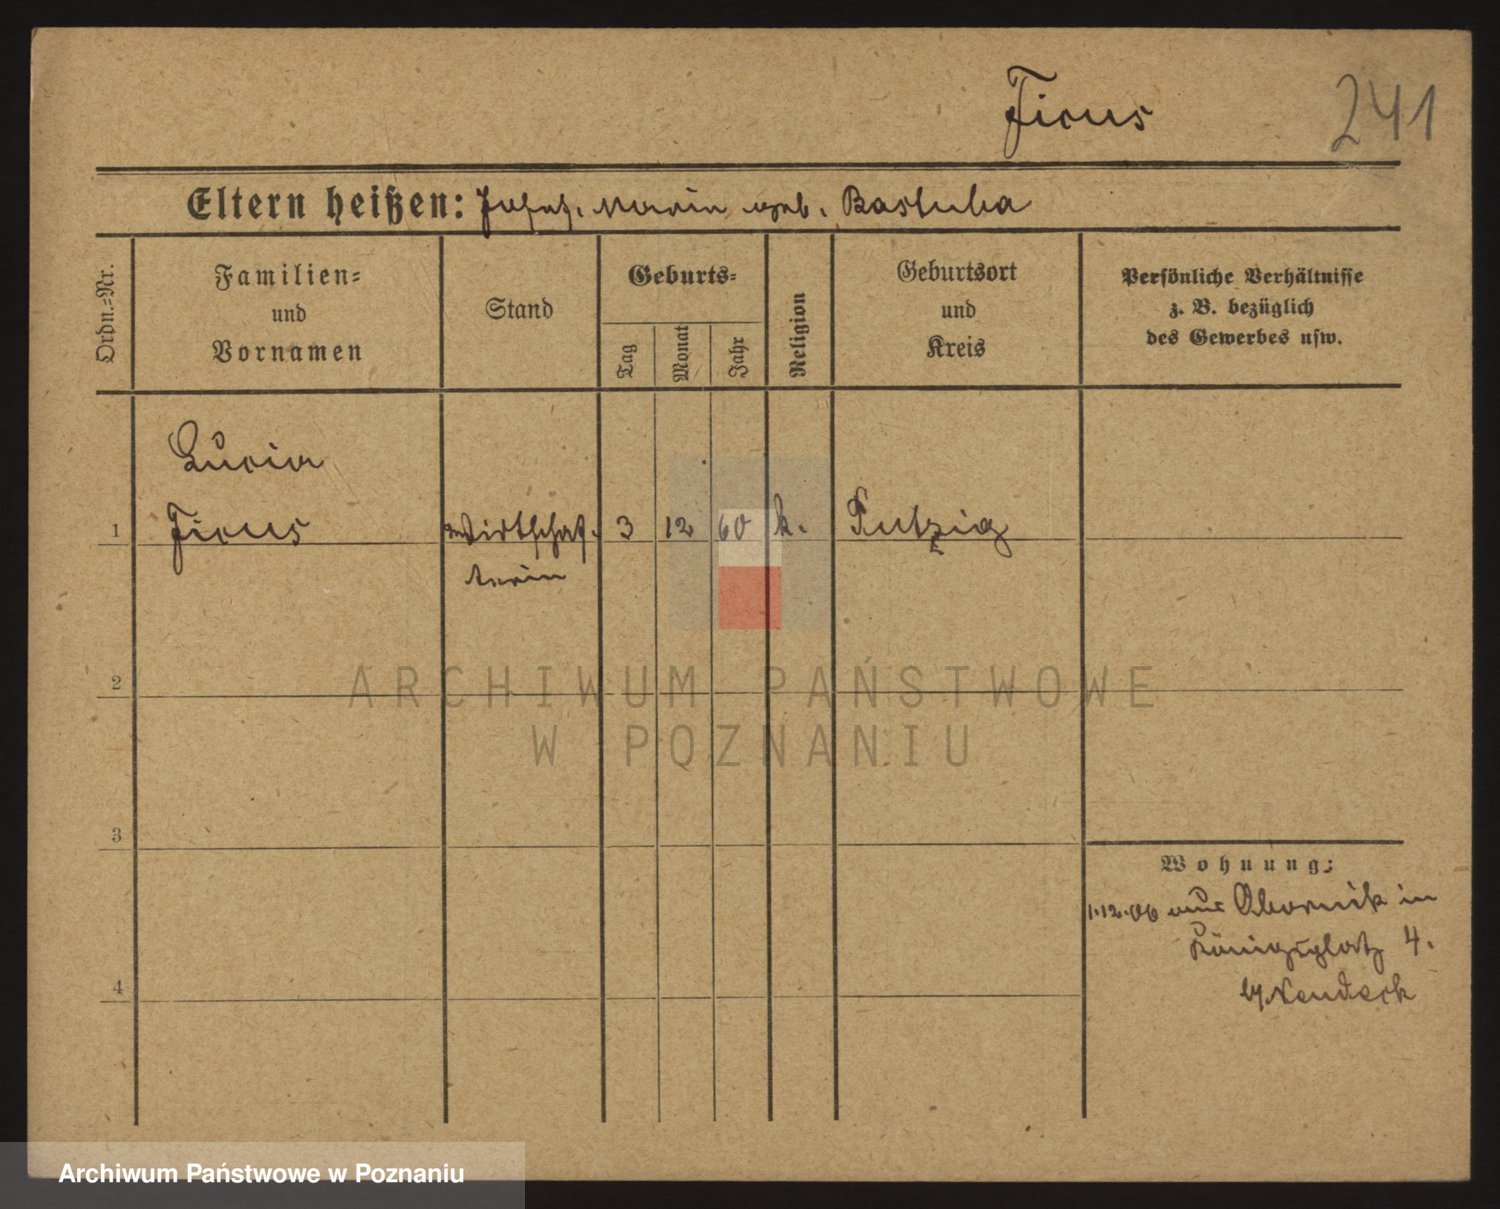 Ficus
241
Eltern heißen: Josef, Maria geb. Bastuba
Ordn.=Nr.
Familien=
und
Vornamen
Stand
Geburts=
Tag
Monat
Jahr
Religion
Geburtsort
und
Kreis
Persönliche Verhältnisse
z. B. bezüglich
des Gewerbes usw.
Lucia
1 Ficus Wirtschaf= 3 12 60 k. Putzig
terin
2
3
4
Wohnung:
1.12.06 aus Obornik in
Königsplatz 4.
ARCHIWUM PAŃSTWOWE
W POZNANIU
Archiwum Państwowe w Poznaniu